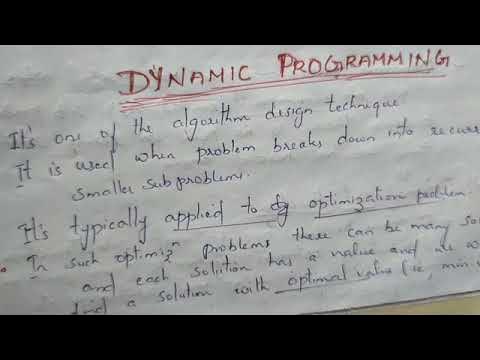 DYNAMIC PROGRAMMING
It's one of the algorithm design technique
It is used when problem breaks down into recurs
smaller subproblems.
It's typically applied to optimization problem.
In such optimizn problems there can be many so
and each solution has a value and we w
find a solution with optimal value (ie, min